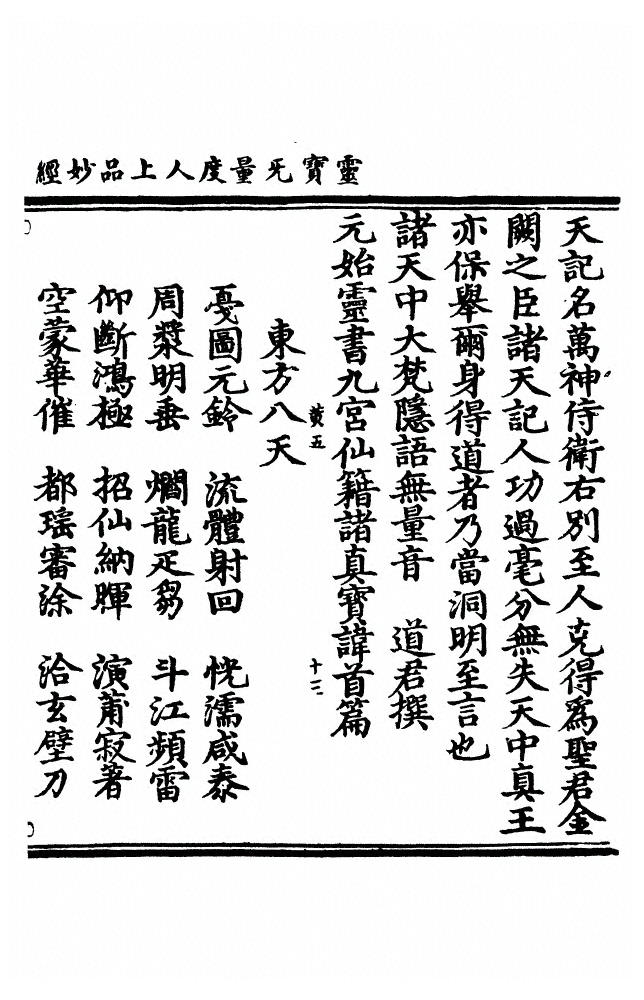 靈寶无量度人上品妙經
天記名萬神侍衛右別至人克得爲聖君金
闕之臣諸天記人功過毫分無失天中真王
亦保舉爾身得道者乃當洞明至言也
諸天中大梵隱語無量音　道君撰
元始靈書九宮仙籍諸真寶諱首篇
黄五　十三
東方八天
戞圖元鈴　流體射回　恍濡咸泰
周槳明垂　爛龍疋芻　斗江頻雷
仰斷鴻極　招仙納暉　演莆寂著
空蒙華倠　都瑶審淾　洽玄壁刀